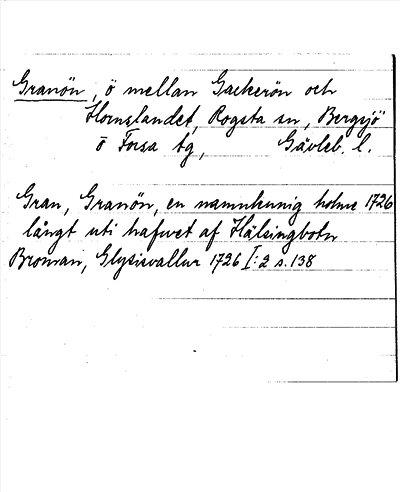 Granön, ö mellan Gackerön och
Hornslandet, Rogsta sn, Bergsjö
o Forsa tg, Gävleb. l.
Gran, Granön, en namnkunnig holme 1726
långt uti hafwet af Hälsingbotn
Broman, Glysisvallur 1726 I:2 s. 138